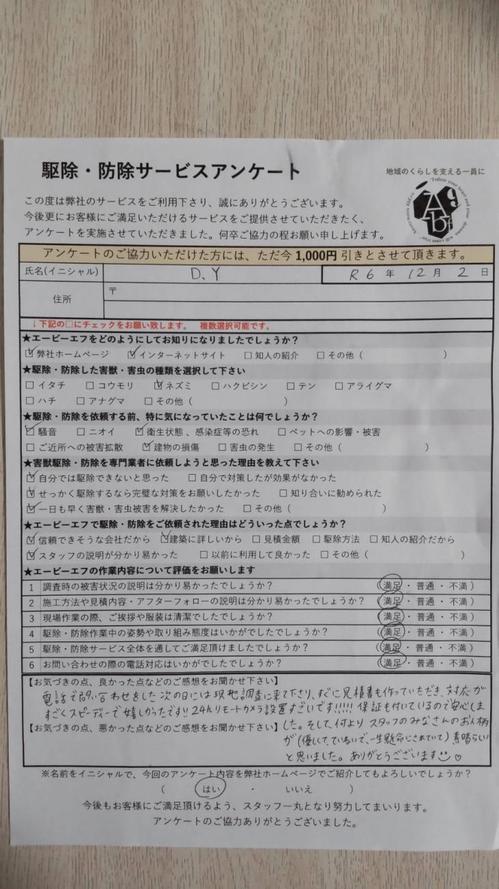 駆除・防除サービスアンケート
地域のくらしを支える一員に
この度は弊社のサービスをご利用下さり、誠にありがとうございます。
今後更にお客様にご満足いただけるサービスをご提供させていただきたく、
アンケートを実施させていただきました。何卒ご協力の程お願い申し上げます。
アンケートのご協力いただけた方には、ただ今 1,000円 引きとさせて頂きます。
氏名(イニシャル) D.Y R6年 12月 2日
住所 〒
↓下記の□にチェックをお願い致します。 複数選択可能です。
★エービーエフをどのようにしてお知りになりましたでしょうか?
☑弊社ホームページ ☑インターネットサイト □知人の紹介 □その他( )
★駆除・防除した害獣・害虫の種類を選択して下さい
□イタチ □コウモリ ☑ネズミ □ハクビシン □テン □アライグマ
□ハチ □アナグマ □その他( )
★駆除・防除を依頼する前、特に気になっていたことは何でしょうか?
☑騒音 □ニオイ ☑衛生状態、感染症等の恐れ □ペットへの影響・被害
□ご近所への被害拡散 ☑建物の損傷 □害虫の発生 □その他( )
★害獣駆除・防除を専門業者に依頼しようと思った理由を教えて下さい
☑自分では駆除できないと思った □自分で対策したが効果がなかった
☑せっかく駆除するなら完璧な対策をお願いしたかった □知り合いに勧められた
☑一日も早く害獣・害虫被害を解決したかった □その他( )
★エービーエフで駆除・防除をご依頼された理由はどういった点でしょうか?
☑信頼できそうな会社だから ☑建築に詳しいから □見積金額 □駆除方法 □知人の紹介だから
☑スタッフの説明が分かり易かった □以前に利用して良かった □その他( )
★エービーエフの作業内容について評価をお願いします
1 調査時の被害状況の説明は分かり易かったでしょうか? (満足・普通・不満)
2 施工方法や見積内容・アフターフォローの説明は分かり易かったでしょうか? (満足・普通・不満)
3 現場作業の際、ご挨拶や服装は清潔でしたでしょうか? (満足・普通・不満)
4 駆除・防除作業中の姿勢や取り組み態度はいかがでしたでしょうか? (満足・普通・不満)
5 駆除・防除サービス全体を通してご満足頂けましたでしょうか? (満足・普通・不満)
6 お問い合わせの際の電話対応はいかがでしたでしょうか? (満足・普通・不満)
【お気づきの点、良かった点などのご感想をお聞かせ下さい】
電話で問い合わせをした次の日には現地調査に来て下さり、すぐに見積書も作っていただき、対応が
すごくスピーディーで嬉しかったです!! 24hリモートカメラ設置すごいです!!!!! 保証も付いているので安心しま
【お気づきの点、悪かった点などのご感想をお聞かせ下さい】
した。そして、何より スタッフのみなさんのお人柄
が(優しくて、ていねいで、一生懸命にされていて)素晴らしい
と思いました。ありがとうございます
※名前をイニシャルで、今回のアンケート内容を弊社ホームページでご紹介してもよろしいでしょうか?
( はい ・ いいえ )
今後もお客様にご満足頂けるよう、スタッフ一丸となり努力してまいります。
アンケートのご協力ありがとうございました。